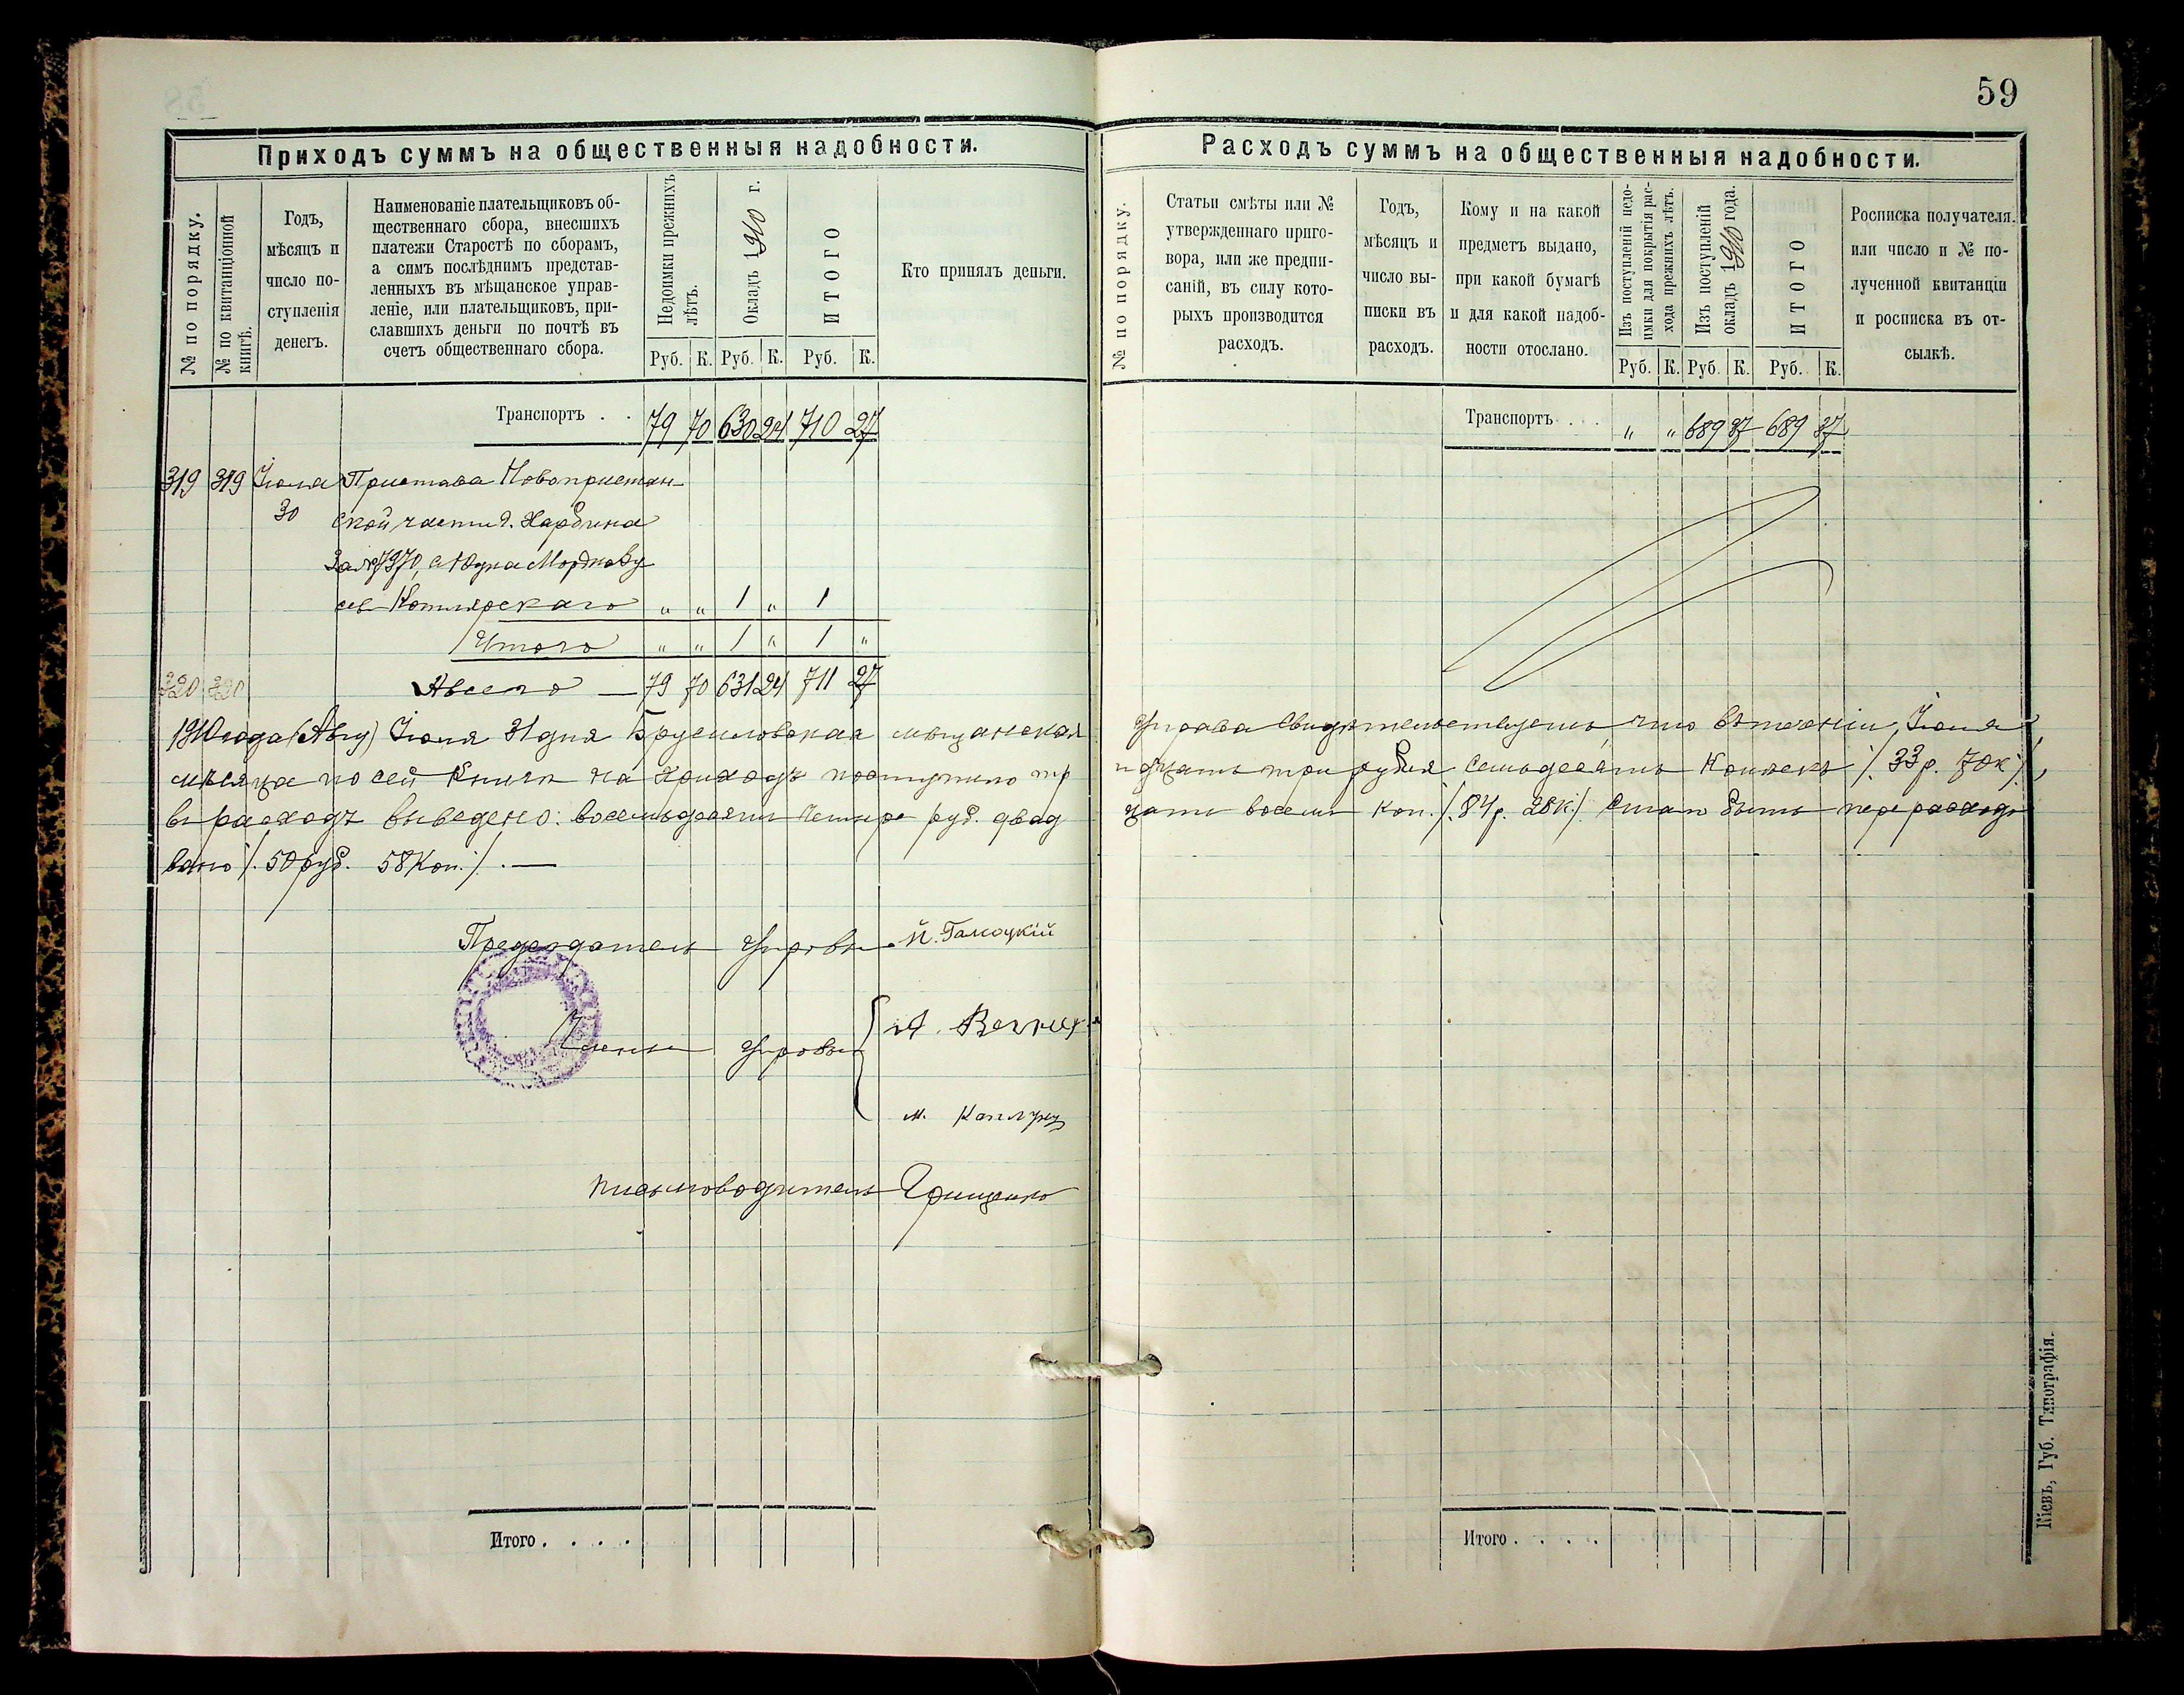 59
Приходъ суммъ на общественныя надобности.
№ по порядку.
№ по квитанціонной книгѣ.
Годъ,
мѣсяцъ и
число по-
ступленія
денегъ.
Наименованіе плательщиковъ об-
щественнаго сбора, внесшихъ
платежи Старостѣ по сборамъ,
а симъ послѣднимъ представ-
ленныхъ въ мѣщанское управ-
леніе, или плательщиковъ, при-
славшихъ деньги по почтѣ въ
счетъ общественнаго сбора.
Недоимки прежнихъ
лѣтъ.
Окладъ 1910 г.
ИТОГО
Кто принялъ деньги.
Руб. К. Руб. К. Руб. К.
Транспортъ . . 79 70 630 24 710 27
319 319 Іюля Пристава Новопристан-
30 ской части г. Харбина
за № 7970, съ Юдка Мордков
Котлярскаго „ „ 1 „ 1
Итого „ „ 1 „ 1 „
320 320 А всего — 79 70 631 24 711 27
1910 года (Авгу) Іюля 31 дня Брусиловская мѣщанская
мѣсяца по сей книгѣ на приходъ поступило тр
въ расходъ выведено: восемьдесятъ четыре руб. двад
вано /. 50 руб. 58 Коп. /. —
Предсѣдатель Управы
Члены Управы
Письмоводитель Грищенко
Итого . . . .
Расходъ суммъ на общественныя надобности.
№ по порядку.
Статьи смѣты или №
утвержденнаго приго-
вора, или же предпи-
саній, въ силу кото-
рыхъ производится
расходъ.
Годъ,
мѣсяцъ и
число вы-
писки въ
расходъ.
Кому и на какой
предметъ выдано,
при какой бумагѣ
и для какой надоб-
ности отослано.
Изъ поступленій недо-
имки для покрытія рас-
хода прежнихъ лѣтъ.
Изъ поступленій
окладъ 1910 года.
ИТОГО
Росписка получателя.
или число и № по-
лученной квитанціи
и росписка въ от-
сылкѣ.
Руб. К. Руб. К. Руб. К.
Транспортъ . . . „ „ 689 37 689 37
Управа свидѣтельствуетъ, что въ теченіи Іюля
идцать три рубля семьдесятъ Копѣекъ /. 33 р. 70 к /.,
цать восемь коп. /. 84 р. 28 к /. Стало быть перерасходо
Итого . . . . .
Кіевъ, Губ. Типографія.